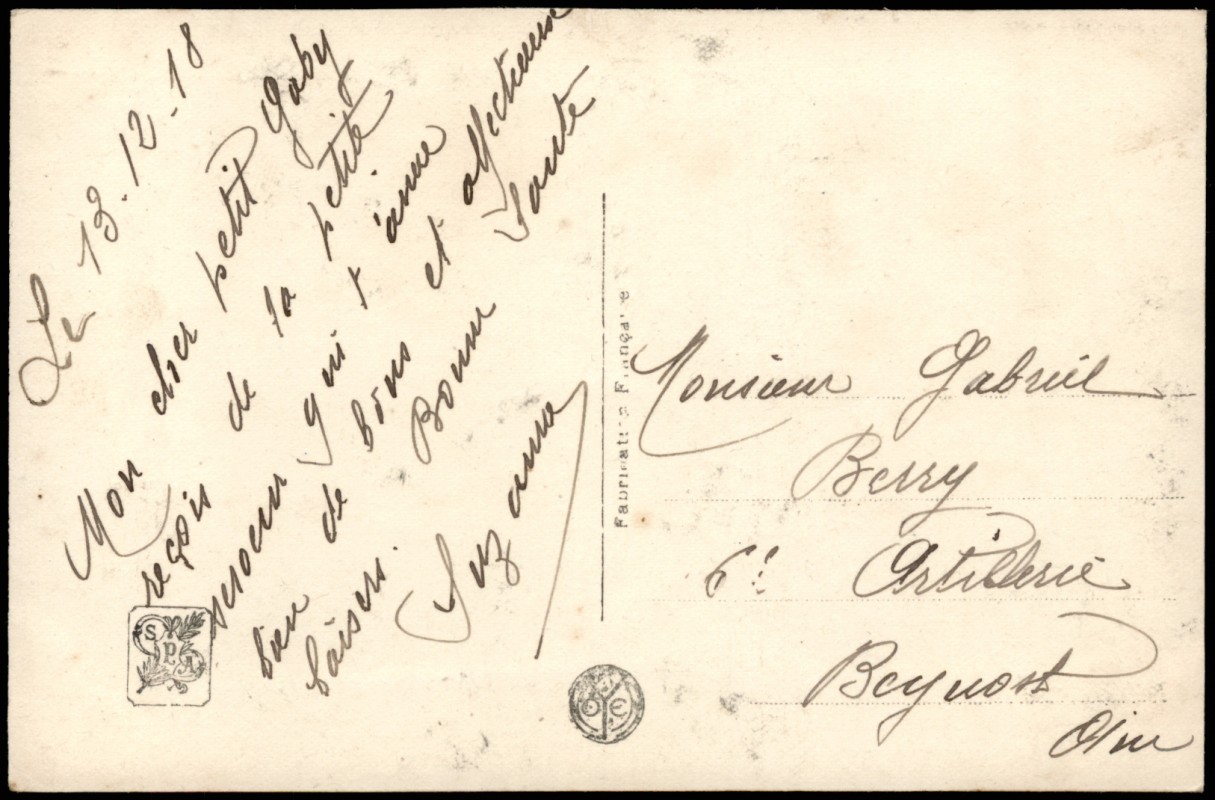 Le 13-12-18
Mon cher petit Gaby
reçois de la petite
qui t'aime
bien de bons et affectueuse
baisers. Bonne Santé
Suzanne
SPA
Fabrication Française
Monsieur Gabriel
Berry
6e Artillerie
Beynost
Ain